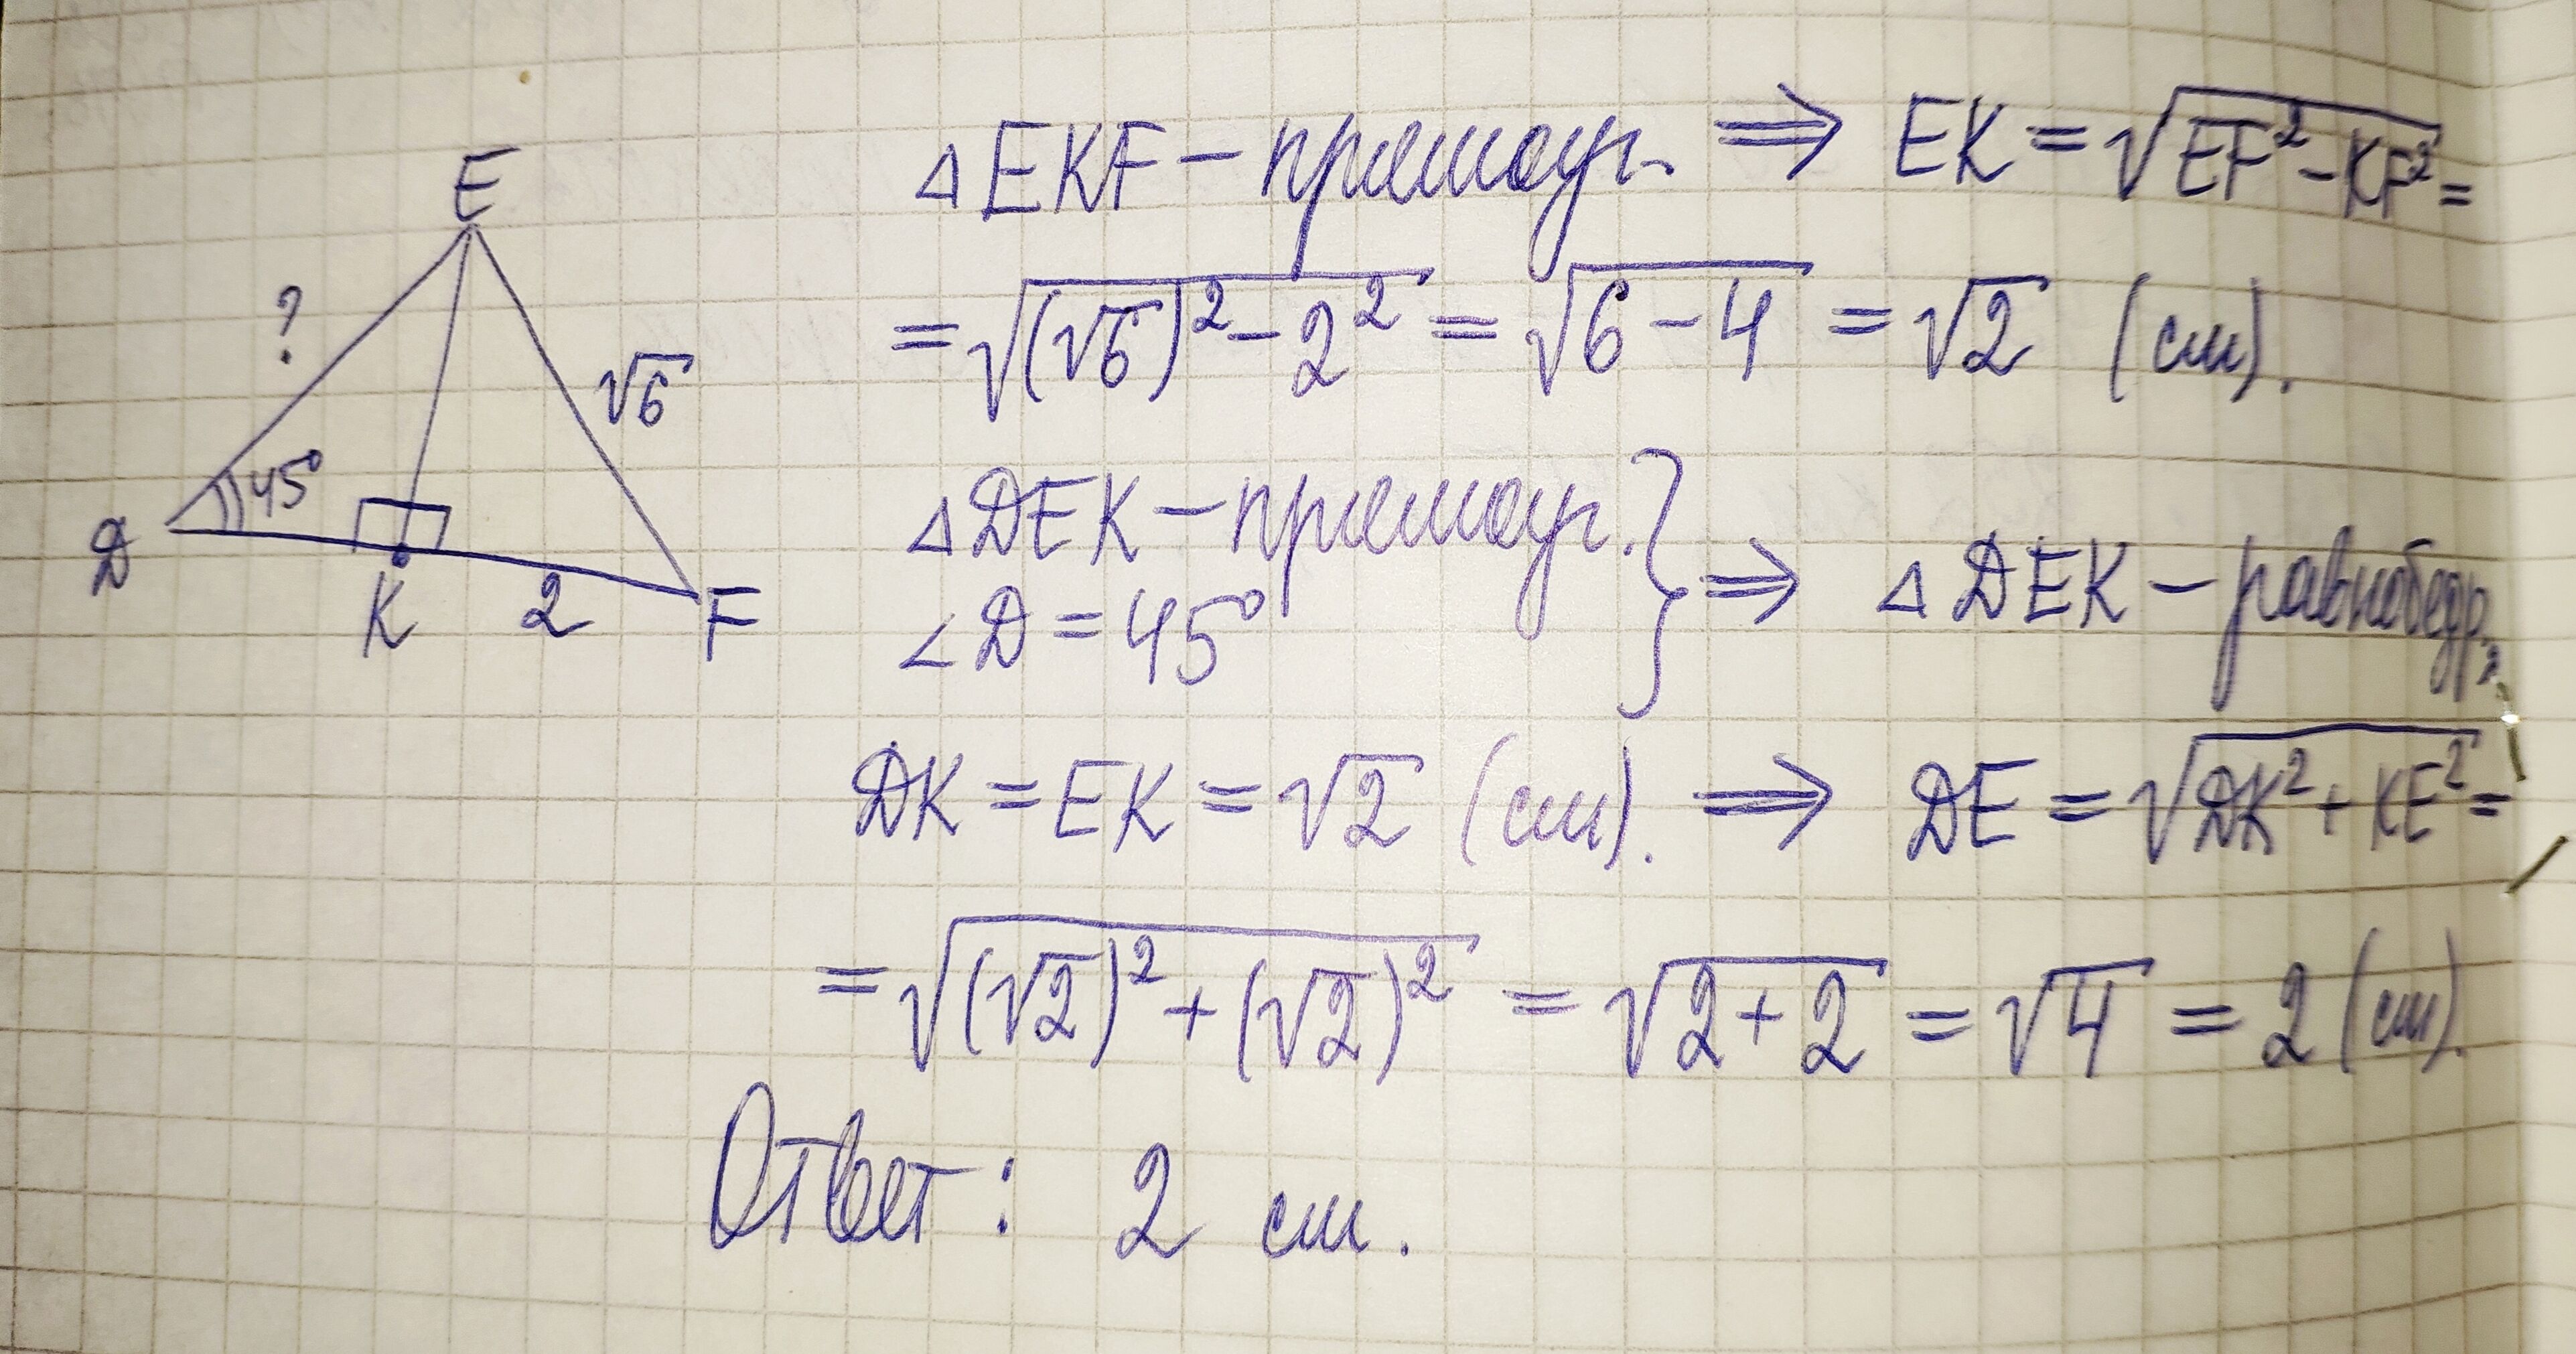 E
?
√6
45°
D
K
2
F
△EKF – прямоуг. ⇒ EK = √(EF² – KF²) =
= √((√6)² – 2²) = √(6 – 4) = √2 (см).
△DEK – прямоуг. } ⇒ △DEK – равнобедр.,
∠D = 45°
DK = EK = √2 (см). ⇒ DE = √(DK² + KE²) =
= √((√2)² + (√2)²) = √(2 + 2) = √4 = 2 (см).
Ответ: 2 см.